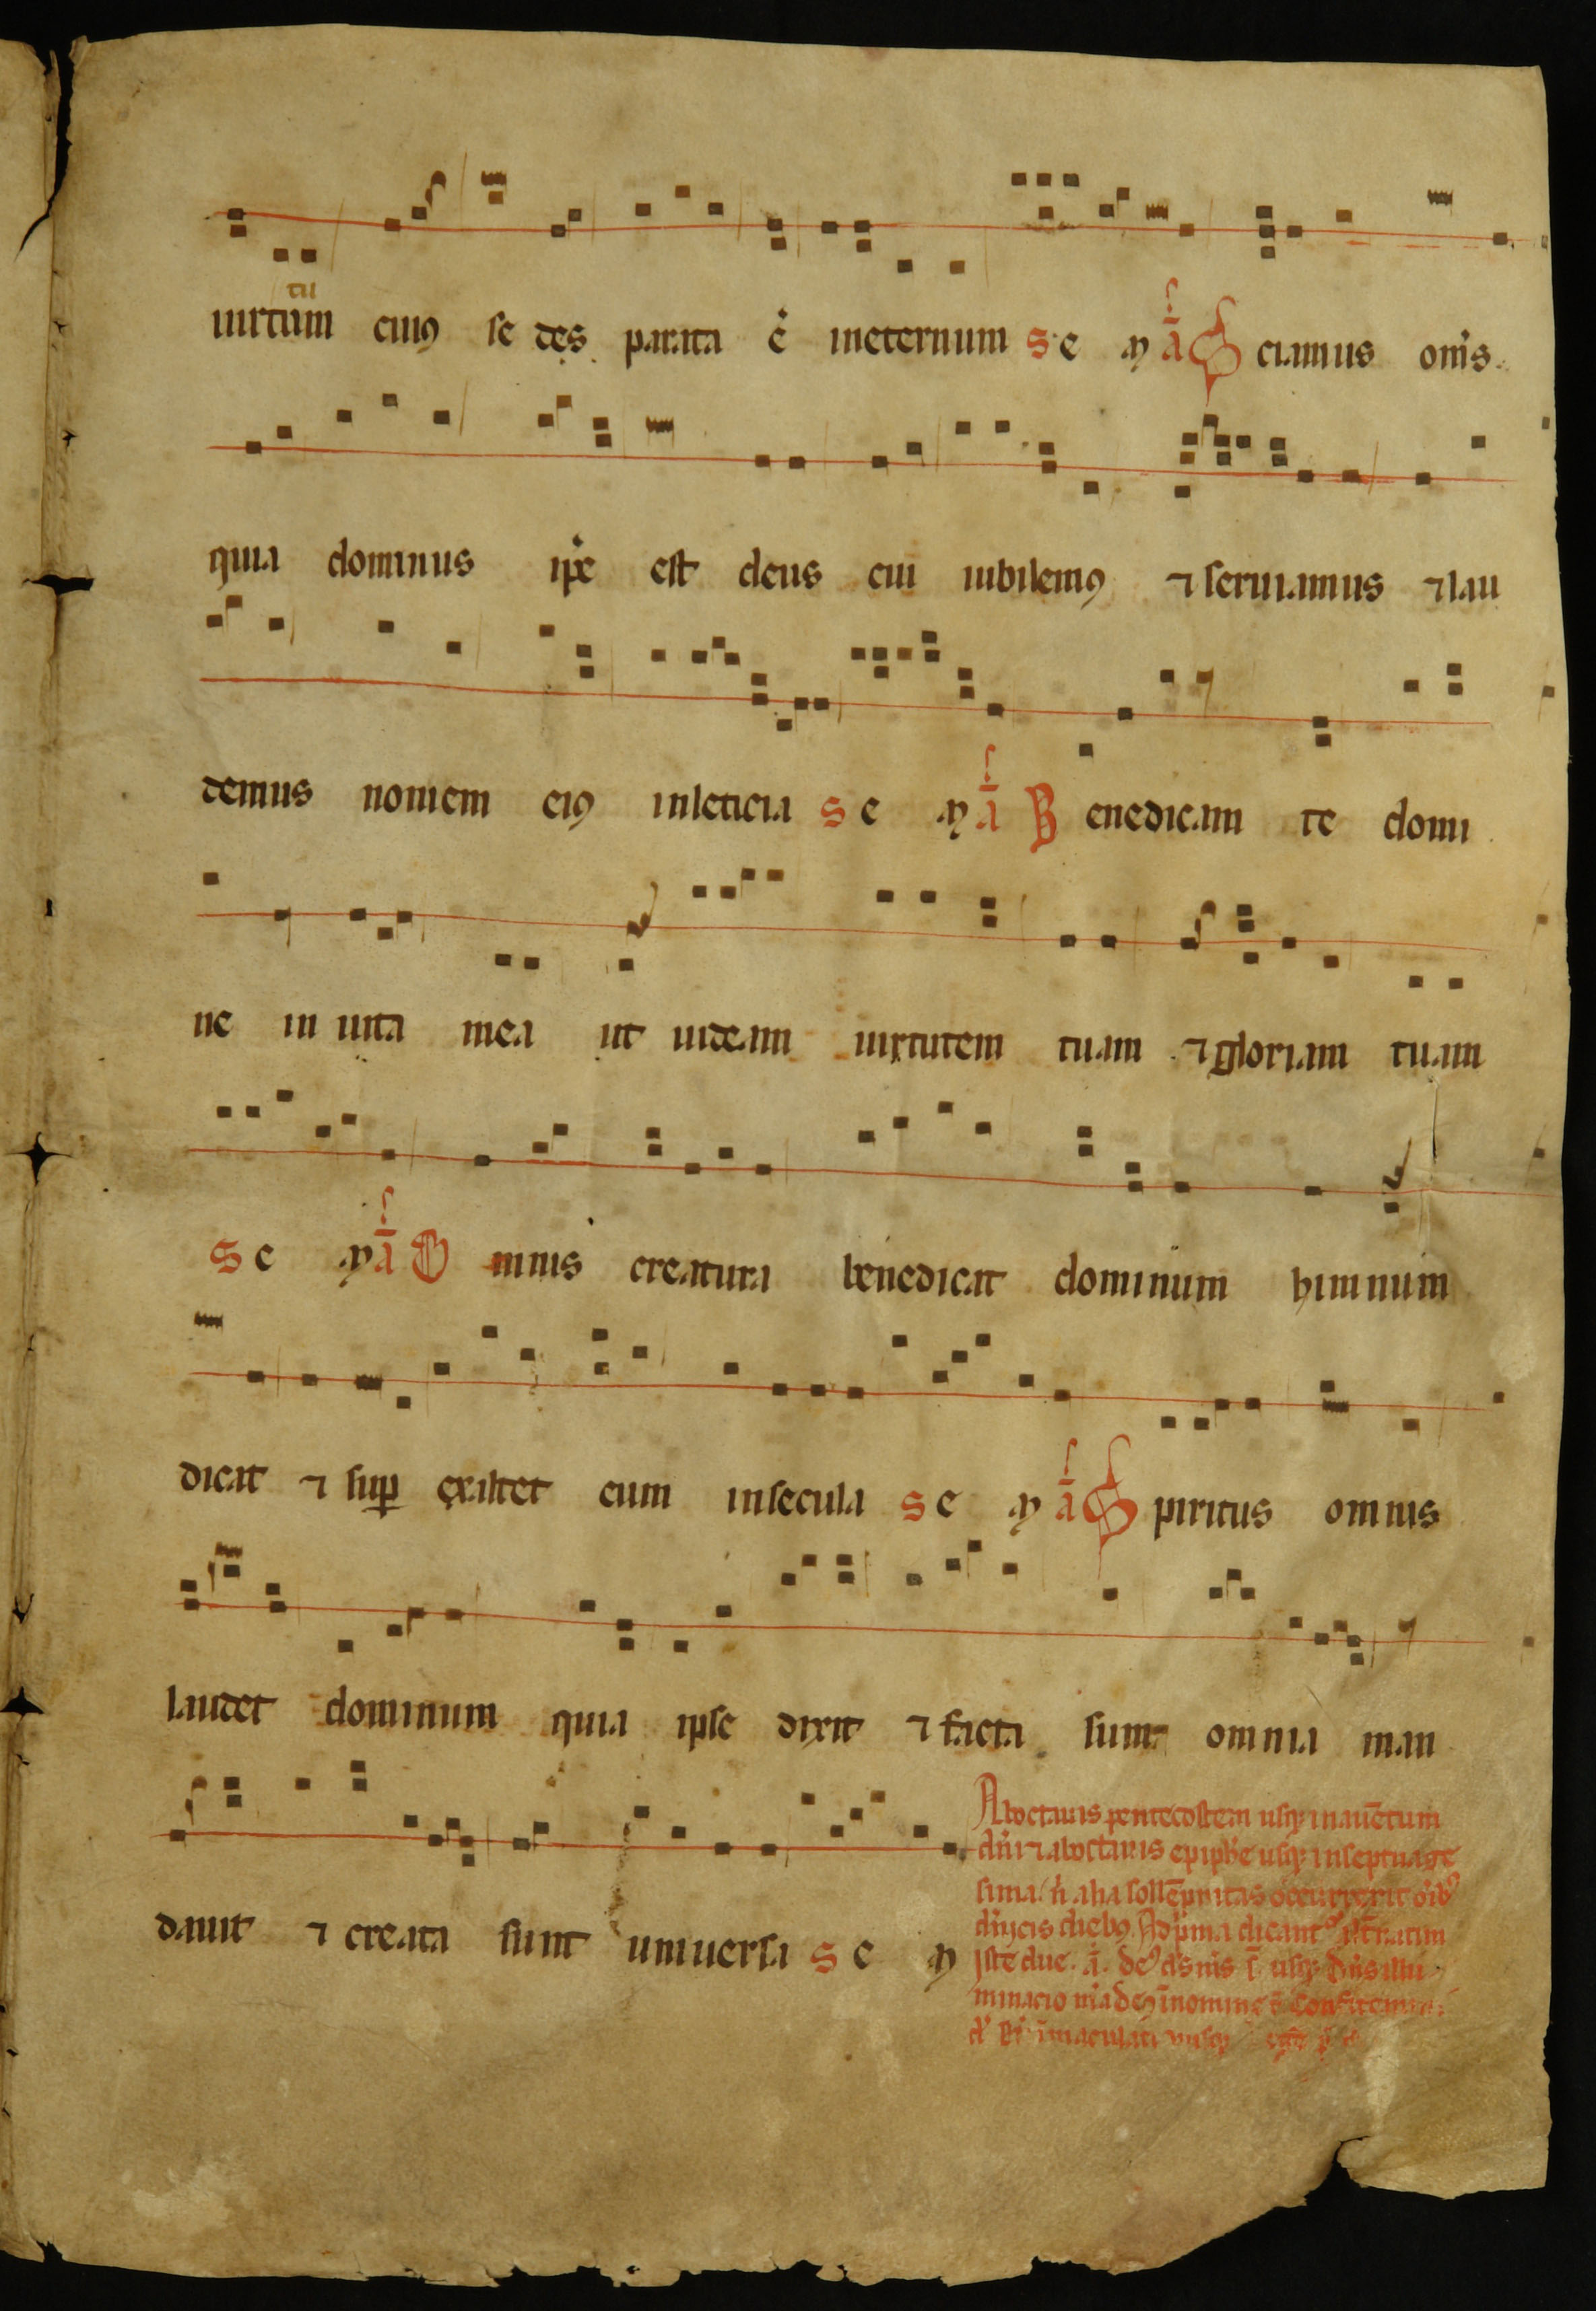 tu
uirtum cuiꝯ se des parata ẽ ineternum se ꝶ ã S ciamus om̃s
quia dominus ip̃e est deus cui iubilemꝯ ⁊ seruiamus ⁊ lau
demus nomem eiꝯ inleticia se ꝶ ã B enedicam te domi
ne in uita mea ut uideam uirtutem tuam ⁊ gloriam tuam
se ꝶ ã O mnis creatura benedicat dominum himnum
dicat ⁊ suꝑ exaltet eum insecula se ꝶ ã S piritus omnis
laudet dominum quia ipse dixit ⁊ facta sunt omnia man
dauit ⁊ creata sunt uniuersa se ꝶ
Aboctauis pentecosten usqꝫ inauẽtum
dñi ⁊ aboctauis epiph̃e usqꝫ inseptuage
sima ñ alia sollẽpnitas occurrerit oĩbꝰ
dñicis diebꝯ Adp̃ma dicant
iste due ã usqꝫ dñs illu
minatio inomine
ĩmaculati